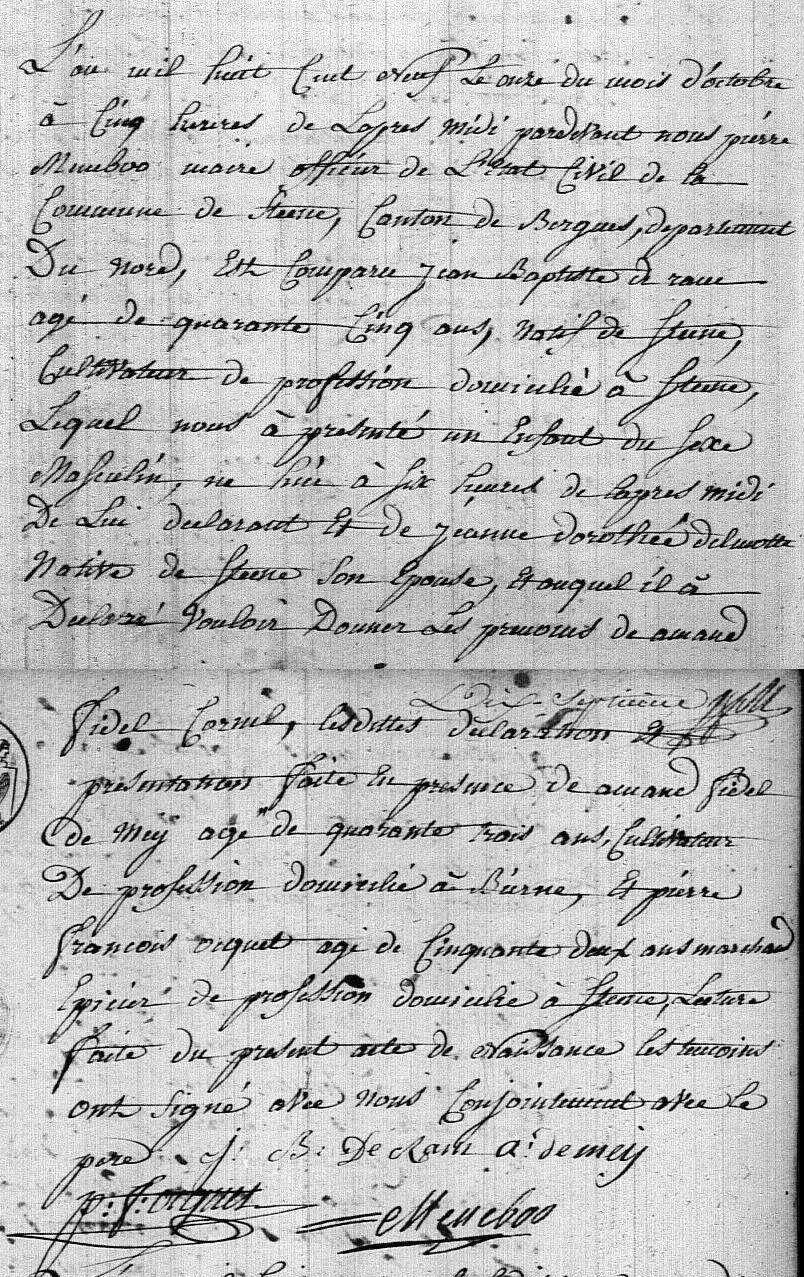 L'an mil huit Cent Neuf Le onze du mois d'octobre
à Cinq heures de Lapres midi pardevant nous pierre
Meneboo maire officier de L'Etat Civil de la
Commune de Steene, Canton de Bergues, departement
Du Nord, Est Comparu jean Baptiste d raeue
agé de quarante Cinq ans, natif de Steene,
Cultivateur de profession domicilié à Steene,
Lequel nous à presenté un Enfant du Sexe
Masculin, ne hié à six heures de lapres midi
De Lui declarant Et de jeanne dorothée delmotte
Native de Steene son Epouse, Et auquel il à
Declaré Vouloir Donner Les prenoms de amand
Dix Septieme
fidel Cornil, lesdittes declaration Et
presentation faite En presence de amand fidel
de Mey agé de quarante trois ans, Cultivateur
De profession domicilié à Bierne, Et pierre
francois ocquet agé de Cinquante deux ans marchand
Epicier de profession domicilié à Steene, Lecture
faite du present acte de Naissance les temoins
ont signé avec nous Conjointement avec le
pere J: B: De Ram a: de meij
p: f: ocquet Meneboo